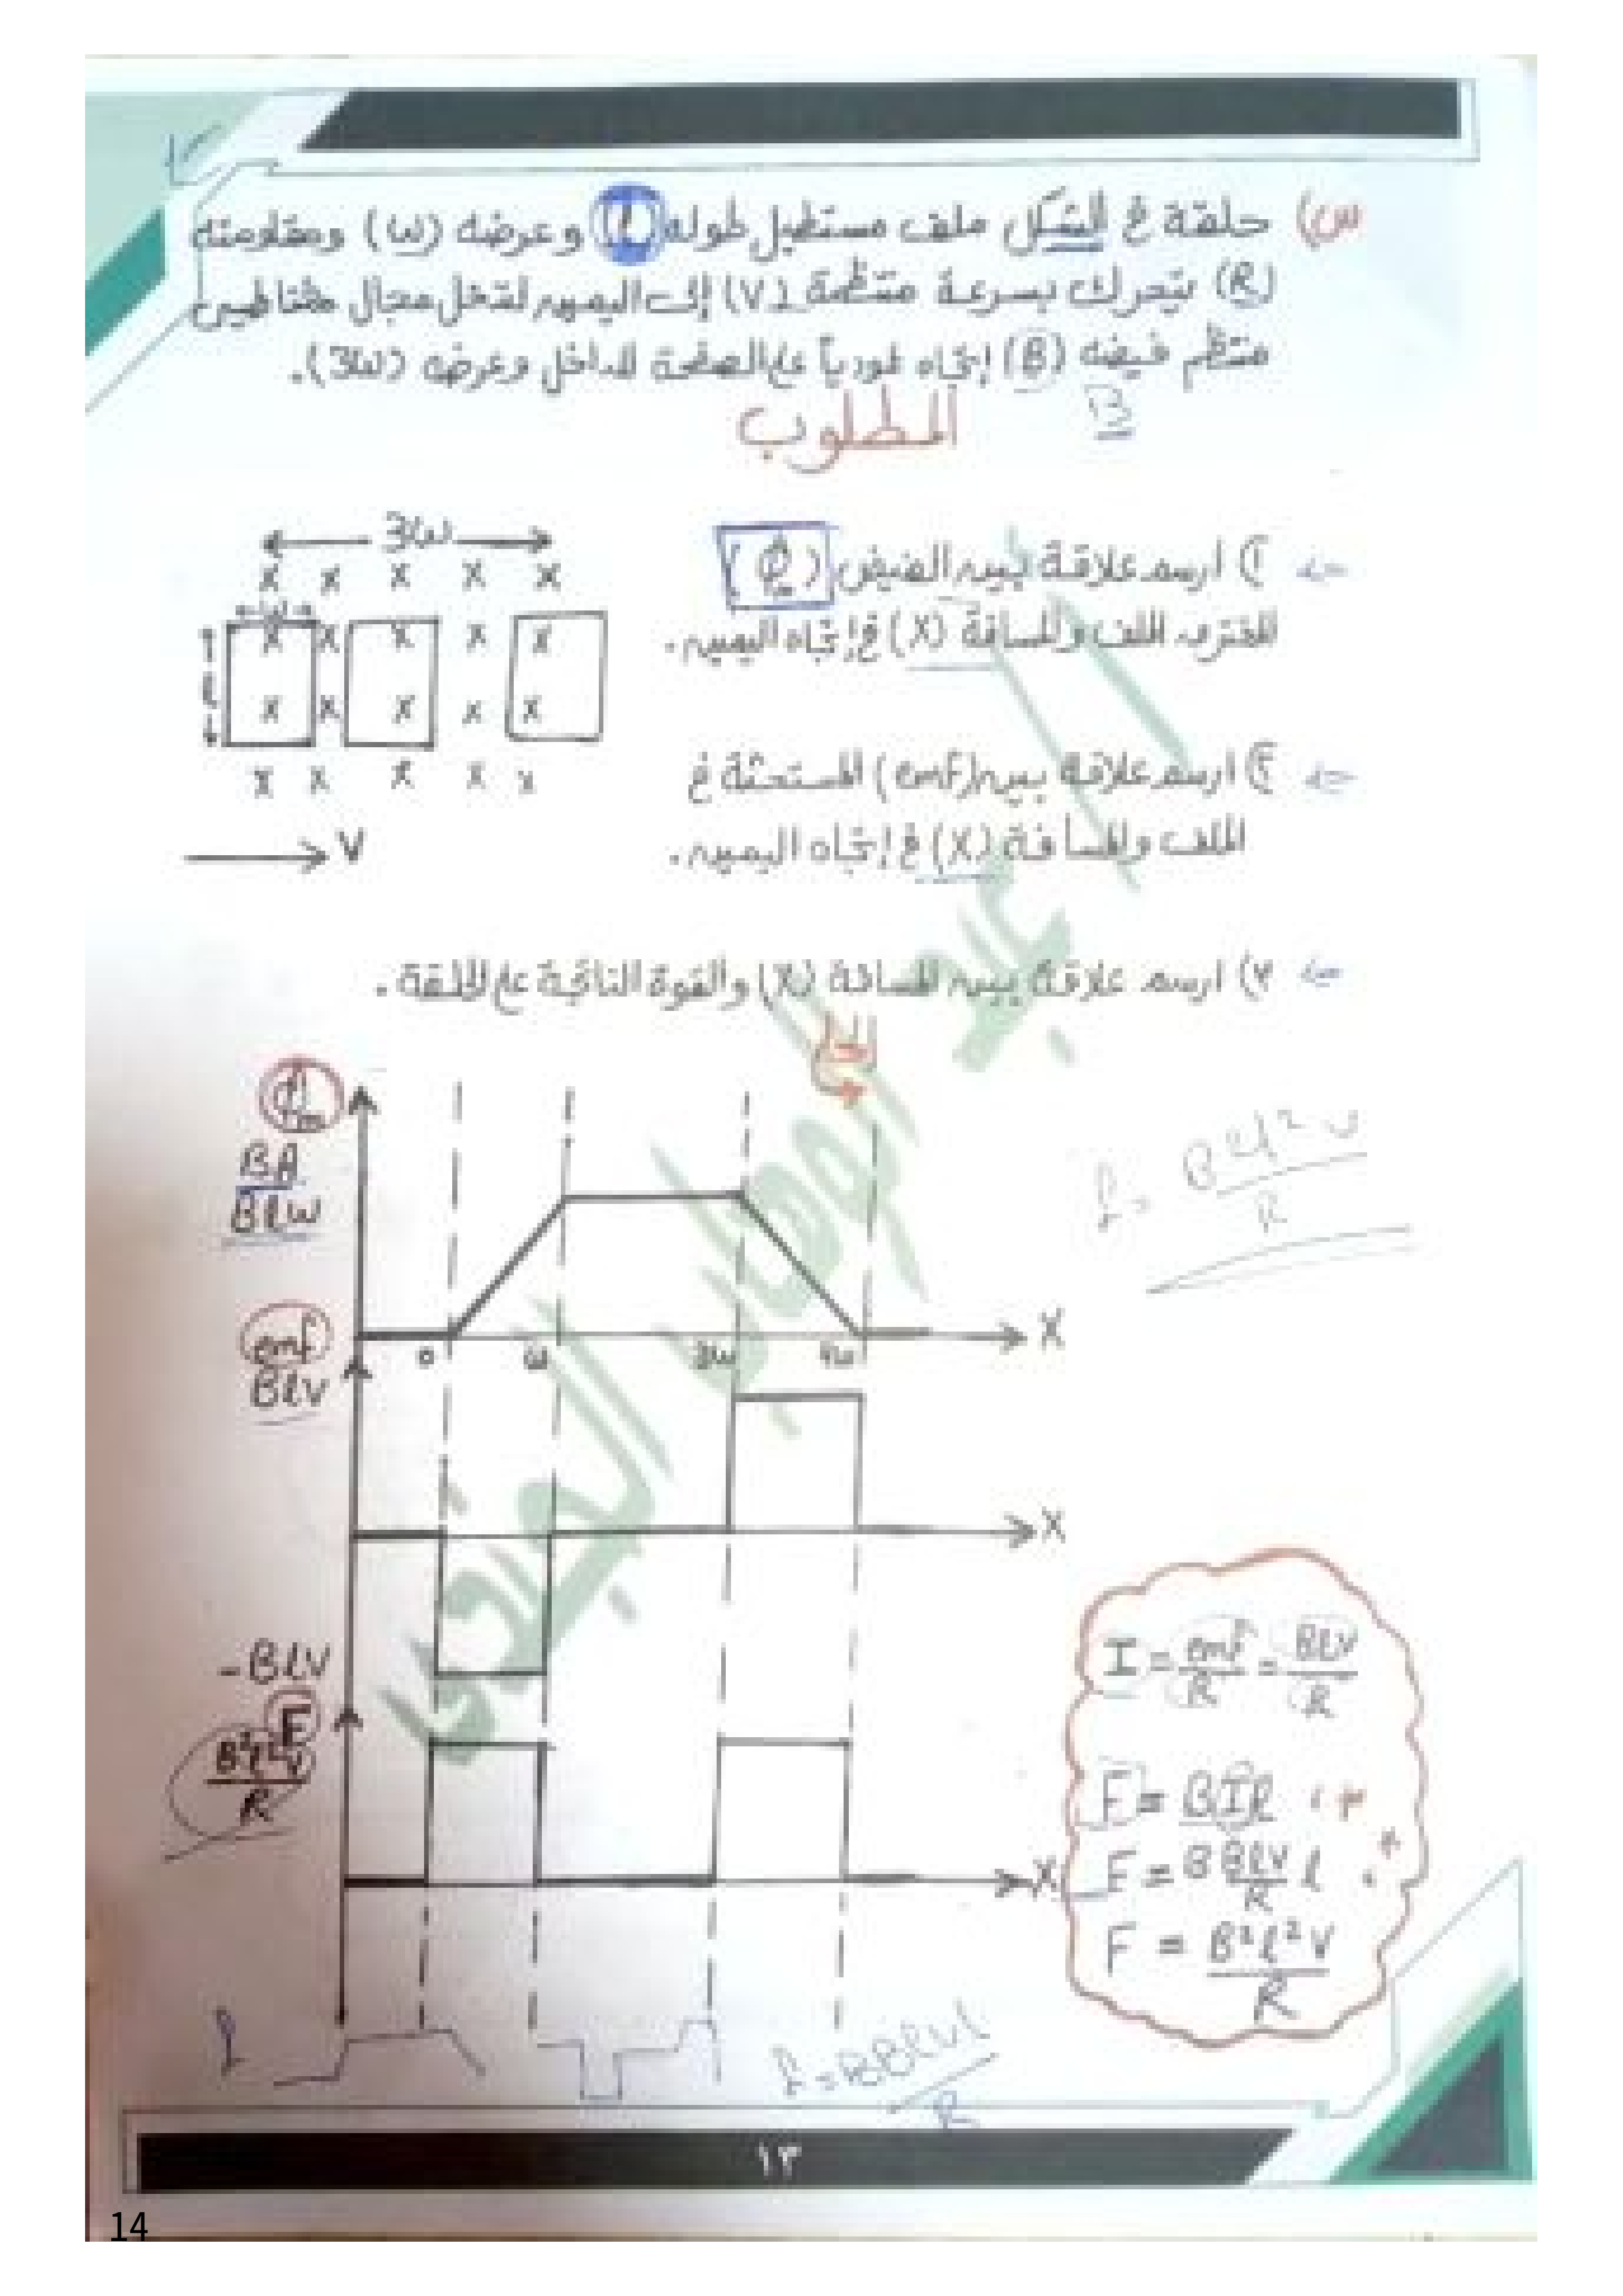 س) حلقة في الشكل ملف مستطيل طوله l وعرضه (w) ومقاومته
(R) يتحرك بسرعة منتظمة (V) إلى اليمين لتدخل مجال مغناطيسي
منتظم فيضه (B) إتجاه عمودياً على الصفحة للداخل وعرضه (3w).
B
المطلوب
١) ارسم علاقة بين الفيض (Φm)
المخترق الملف والمسافة (X) في إتجاه اليمين.
3w
x x x x x
w
x x x x x
l
x x x x x
x x x x x
V
٢) ارسم علاقة بين (emf) المستحثة في
الملف والمسافة (X) في إتجاه اليمين.
٣) ارسم علاقة بين المسافة (X) والقوة الناتجة على الحلقة.
الحل
Φm
BA
Blw
0 w 3w 4w X
emf
Blv
X
-Blv
F
B²l²v
R
X
f = B²l²v
R
I = emf/R = Blv/R
F = BIl
F = B Blv/R l
F = B²l²v/R
f
f = BBlvl
R
١٣
14